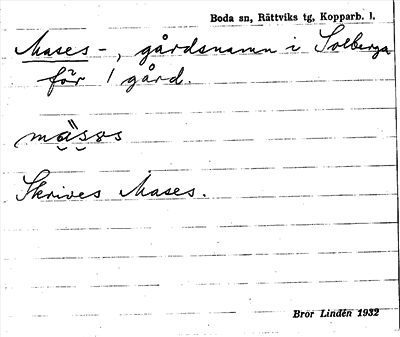 Boda sn, Rättviks tg, Kopparb. l.
Mases –, gårdsnamn i Solberga
för 1 gård.
mäsos
Skrives Mases.
Bror Lindén 1932